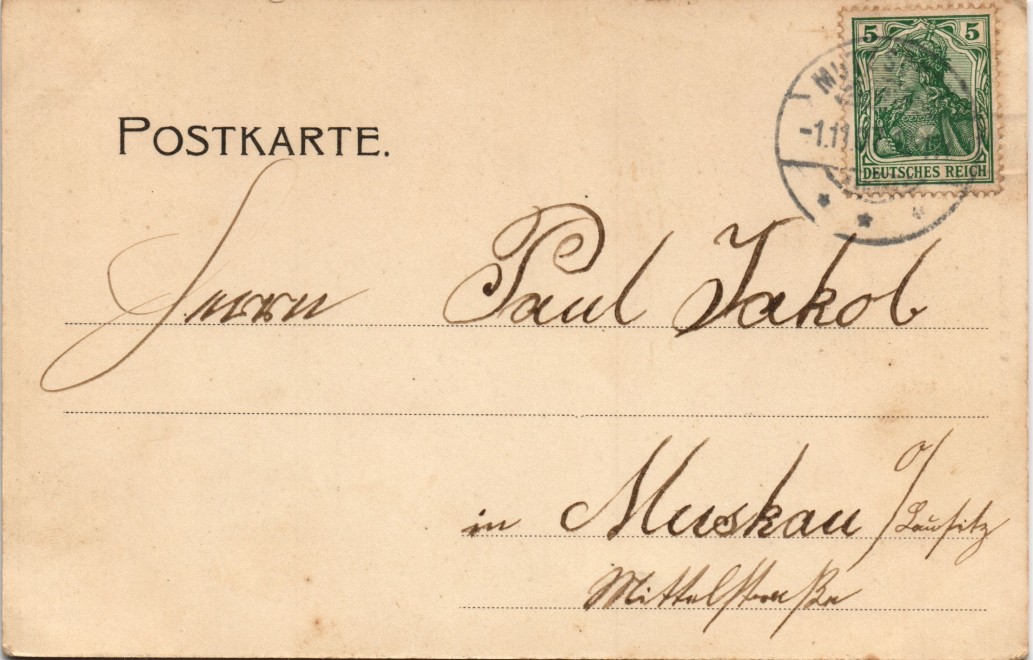 5 5
DEUTSCHES REICH
-1.11.
POSTKARTE.
Herrn Paul Jakob
in Muskau O/Lausitz
Mittelstraße